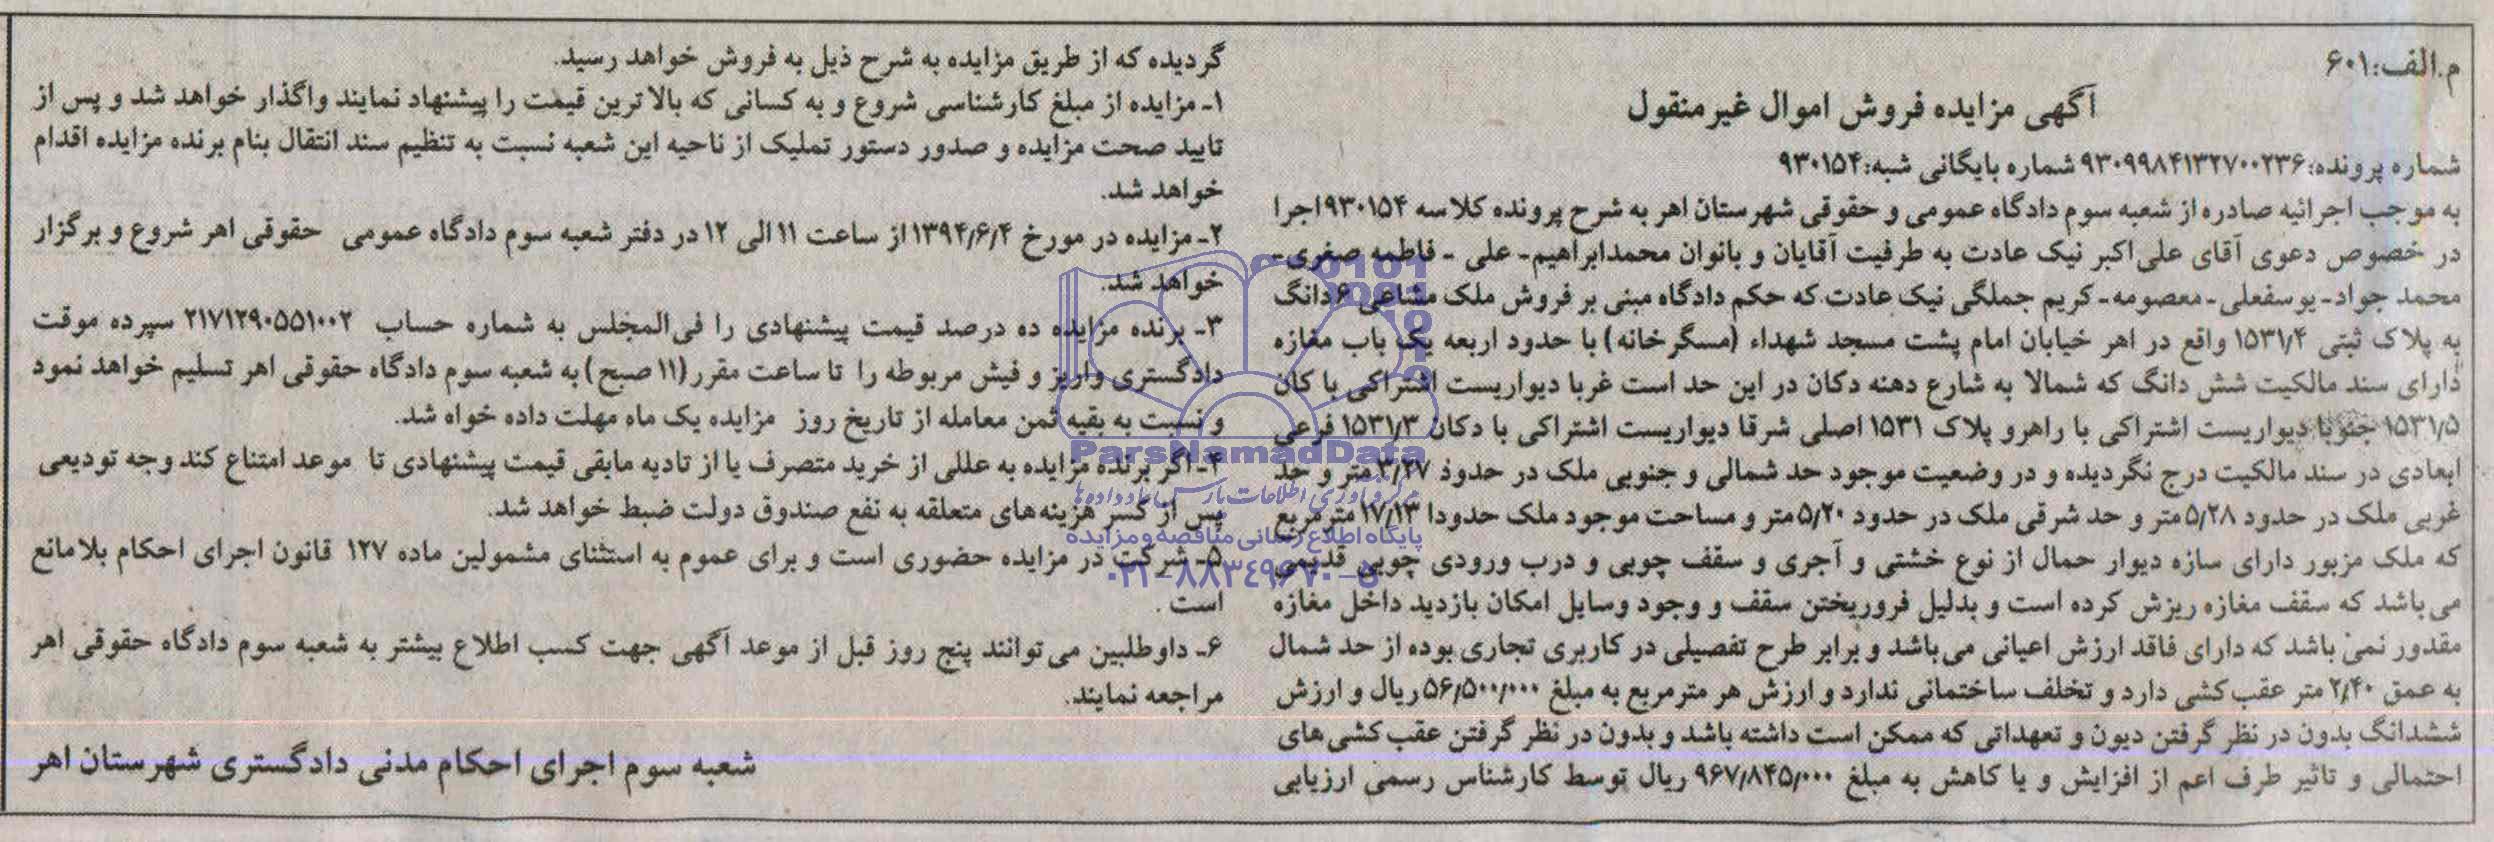 م.الف:۶۰۱
آگهی مزایده فروش اموال غیرمنقول
شماره پرونده:۹۳۰۹۹۸۴۱۳۲۷۰۰۲۳۶ شماره بایگانی شبه:۹۳۰۱۵۴
به موجب اجرائیه صادره از شعبه سوم دادگاه عمومی و حقوقی شهرستان اهر به شرح پرونده کلاسه ۹۳۰۱۵۴ اجرا
در خصوص دعوی آقای علی‌اکبر نیک عادت به طرفیت آقایان و بانوان محمدابراهیم- علی - فاطمه صغری-
محمد جواد-یوسفعلی-معصومه-کریم جملگی نیک عادت که حکم دادگاه مبنی بر فروش ملک مشاعی ۶دانگ
به پلاک ثبتی ۱۵۳۱/۴ واقع در اهر خیابان امام پشت مسجد شهداء (مسگرخانه) با حدود اربعه یک باب مغازه
دارای سند مالکیت شش دانگ که شمالا به شارع دهنه دکان در این حد است غربا دیواریست اشتراکی با کان
۱۵۳۱/۵ جنوبا دیواریست اشتراکی با راهرو پلاک ۱۵۳۱ اصلی شرقا دیواریست اشتراکی با دکان ۱۵۳۱/۳ فرعی
ابعادی در سند مالکیت درج نگردیده و در وضعیت موجود حد شمالی و جنوبی ملک در حدود ۳/۲۷ متر و حد
غربی ملک در حدود ۵/۲۸متر و حد شرقی ملک در حدود ۵/۲۰متر و مساحت موجود ملک حدودا ۱۷/۱۳ مترمربع
که ملک مزبور دارای سازه دیوار حمال از نوع خشتی و آجری و سقف چوبی و درب ورودی چوبی قدیمی
می‌باشد که سقف مغازه ریزش کرده است و بدلیل فروریختن سقف و وجود وسایل امکان بازدید داخل مغازه
مقدور نمی باشد که دارای فاقد ارزش اعیانی می‌باشد و برابر طرح تفصیلی در کاربری تجاری بوده از حد شمال
به عمق ۲/۴۰ متر عقب‌کشی دارد و تخلف ساختمانی ندارد و ارزش هر مترمربع به مبلغ ۵۶/۵۰۰/۰۰۰ریال و ارزش
ششدانگ بدون در نظر گرفتن دیون و تعهداتی که ممکن است داشته باشد و بدون در نظر گرفتن عقب‌کشی‌های
احتمالی و تاثیر طرف اعم از افزایش و یا کاهش به مبلغ ۹۶۷/۸۴۵/۰۰۰ ریال توسط کارشناس رسمی ارزیابی
گردیده که از طریق مزایده به شرح ذیل به فروش خواهد رسید.
۱- مزایده از مبلغ کارشناسی شروع و به کسانی که بالاترین قیمت را پیشنهاد نمایند واگذار خواهد شد و پس از
تایید صحت مزایده و صدور دستور تملیک از ناحیه این شعبه نسبت به تنظیم سند انتقال بنام برنده مزایده اقدام
خواهد شد.
۲- مزایده در مورخ ۱۳۹۴/۶/۴ از ساعت ۱۱ الی ۱۲ در دفتر شعبه سوم دادگاه عمومی حقوقی اهر شروع و برگزار
خواهد شد.
۳- برنده مزایده ده درصد قیمت پیشنهادی را فی‌المجلس به شماره حساب ۲۱۷۱۲۹۰۵۵۱۰۰۲ سپرده موقت
دادگستری واریز و فیش مربوطه را تا ساعت مقرر (۱۱ صبح) به شعبه سوم دادگاه حقوقی اهر تسلیم خواهد نمود
و نسبت به بقیه ثمن معامله از تاریخ روز مزایده یک ماه مهلت داده خواه شد.
۴- اگر برنده مزایده به عللی از خرید متصرف یا از تادیه مابقی قیمت پیشنهادی تا موعد امتناع کند وجه تودیعی
پس از کسر هزینه‌های متعلقه به نفع صندوق دولت ضبط خواهد شد.
۵- شرکت در مزایده حضوری است و برای عموم به استثنای مشمولین ماده ۱۲۷ قانون اجرای احکام بلامانع
است .
۶- داوطلبین می‌توانند پنج روز قبل از موعد آگهی جهت کسب اطلاع بیشتر به شعبه سوم دادگاه حقوقی اهر
مراجعه نمایند.
شعبه سوم اجرای احکام مدنی دادگستری شهرستان اهر
ParsNamadData
پایگاه اطلاع رسانی مناقصه و مزایده
۰۲۱-۸۸۳۴۹۶۷۰-۵